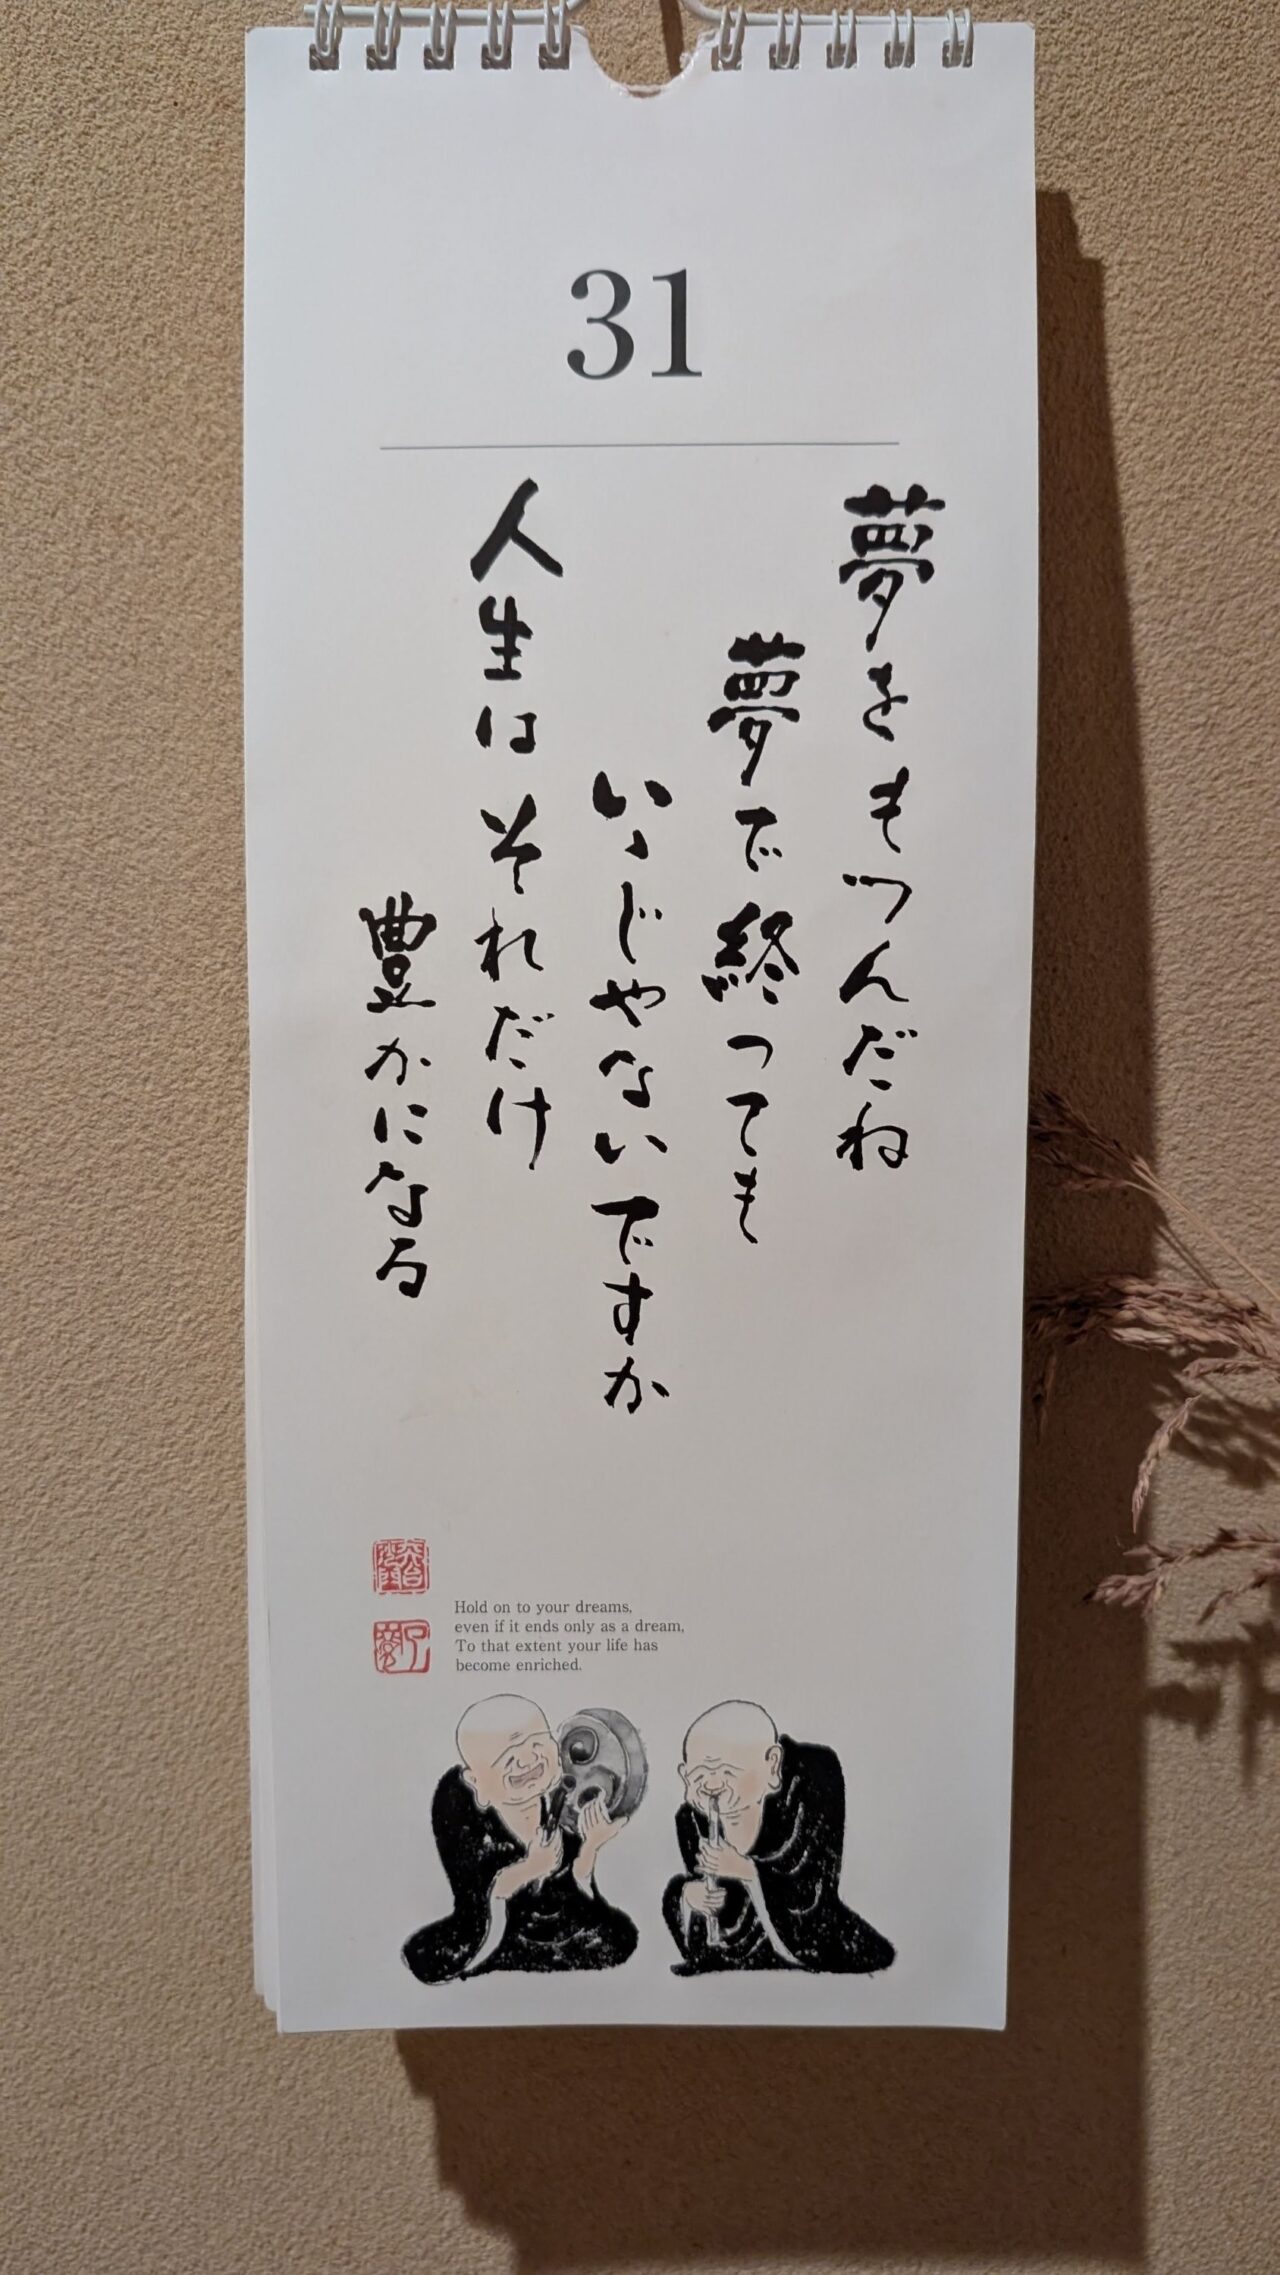 31
夢をもつんだね
夢で終っても
いゝじゃないですか
人生はそれだけ
豊かになる
Hold on to your dreams,
even if it ends only as a dream,
To that extent your life has
become enriched.